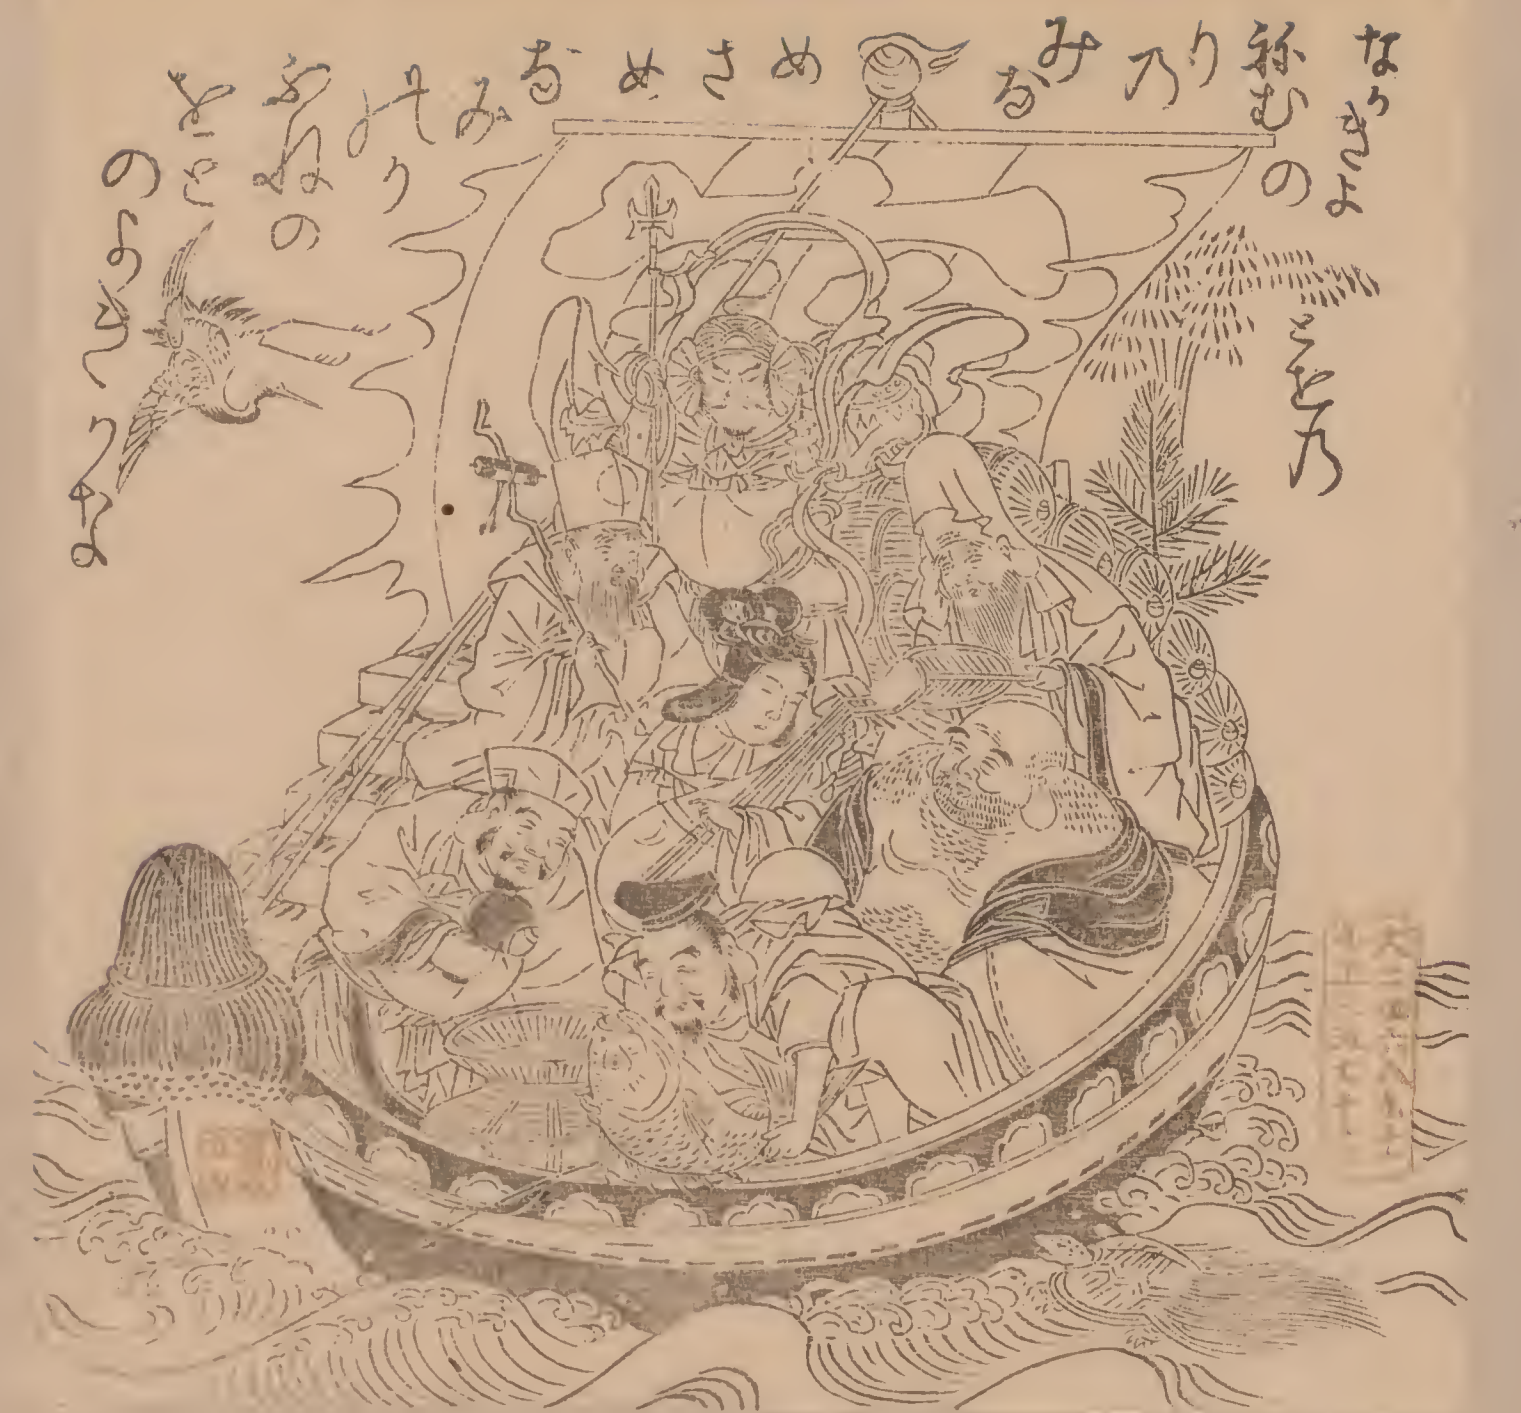 なかきよ
の
とを乃
祢む
り乃
みな
め
さ
め
な
み
のり
ふねの
をと
のよきかな